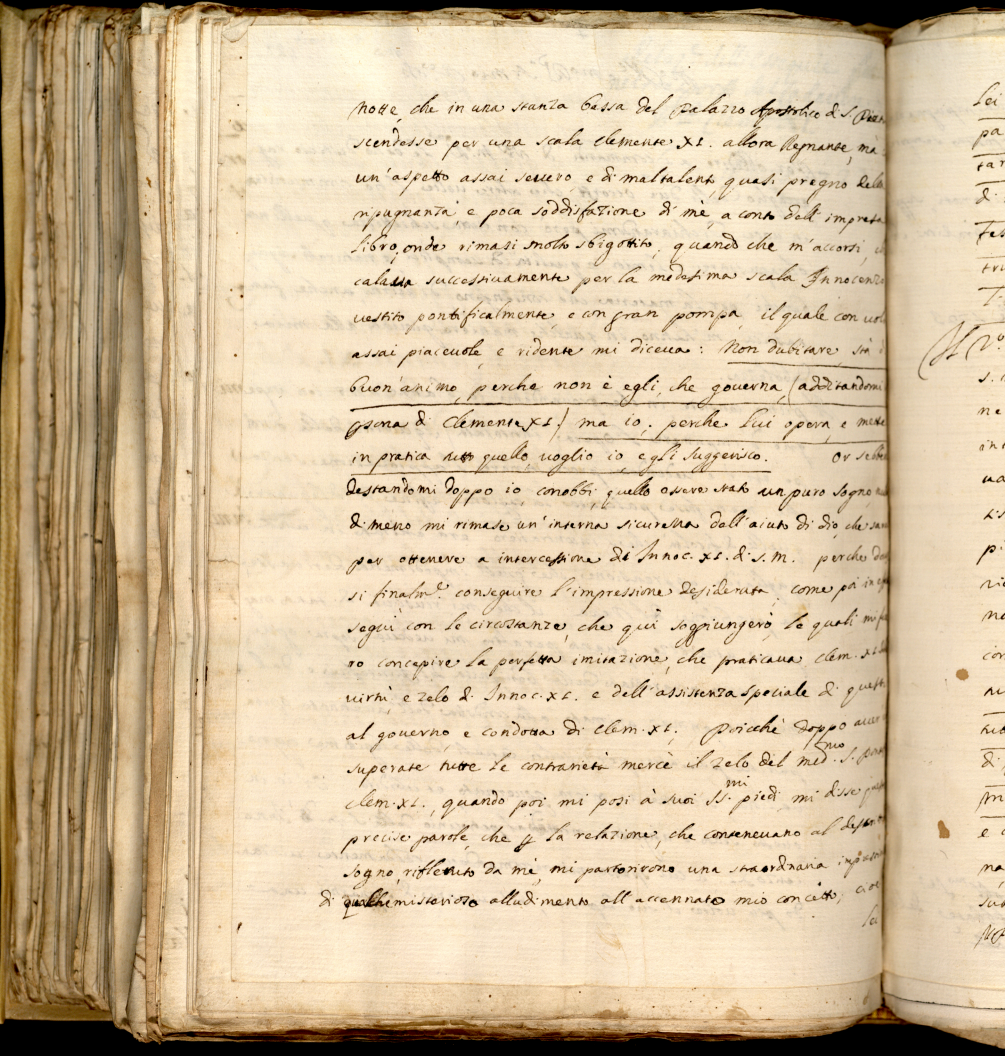 notte, che in una stanza bassa del Palazzo Apostolico di S.
scendesse per una scala Clemente XI. allora Regnante, ma
un'aspetto assai severo, e di maltalento quasi pregno della
ripugnanza, e poca soddisfazione di mè, a conto dell'impresa
libro, onde rimasi molto sbigottito, quando che m'accorsi,
calava successivamente per la medesima scala Innocenzo
vestito pontificalmente, e con gran pompa, il quale con
assai piacevole, e ridente mi diceva: Non dubitare, stà
buon'animo, perche non è egli, che governa, (additandomi
psona di Clemente XI.) ma io; perche lui opera, e mette
in pratica tutto quello, voglio io, e gli suggerisco. Or
destandomi doppo io, conobbi, quello essere stato un puro sogno,
di meno mi rimase un'interna sicurezza dell'aiuto di dio, che
per ottenere a intercessione di Innoc. XI. di s. m. perche
si finalmte. conseguire l'impressione desiderata, come poi in
seguì con le circostanze, che quì soggiungerò, le quali mi
ro concepire la perfetta imitazione, che praticava Clem. XI.
virtù, e zelo di Innoc. XI. e dell'assistenza speciale di questi
al governo, e condotta di Clem. XI. Poichè doppo aver
superate tutte le contrarietà mercè il zelo del med.mo S.
Clem. XI., quando poi mi posi à suoi SS.mi piedi, mi disse
precise parole, che p la relazione, che contenevano al
sogno, riflettuto da mè, mi partorirono una straordinaria
di qualche misterioso alludimento all'accennato mio concetto, cioè
Lei
pa
tar
di
tri
s.
ne